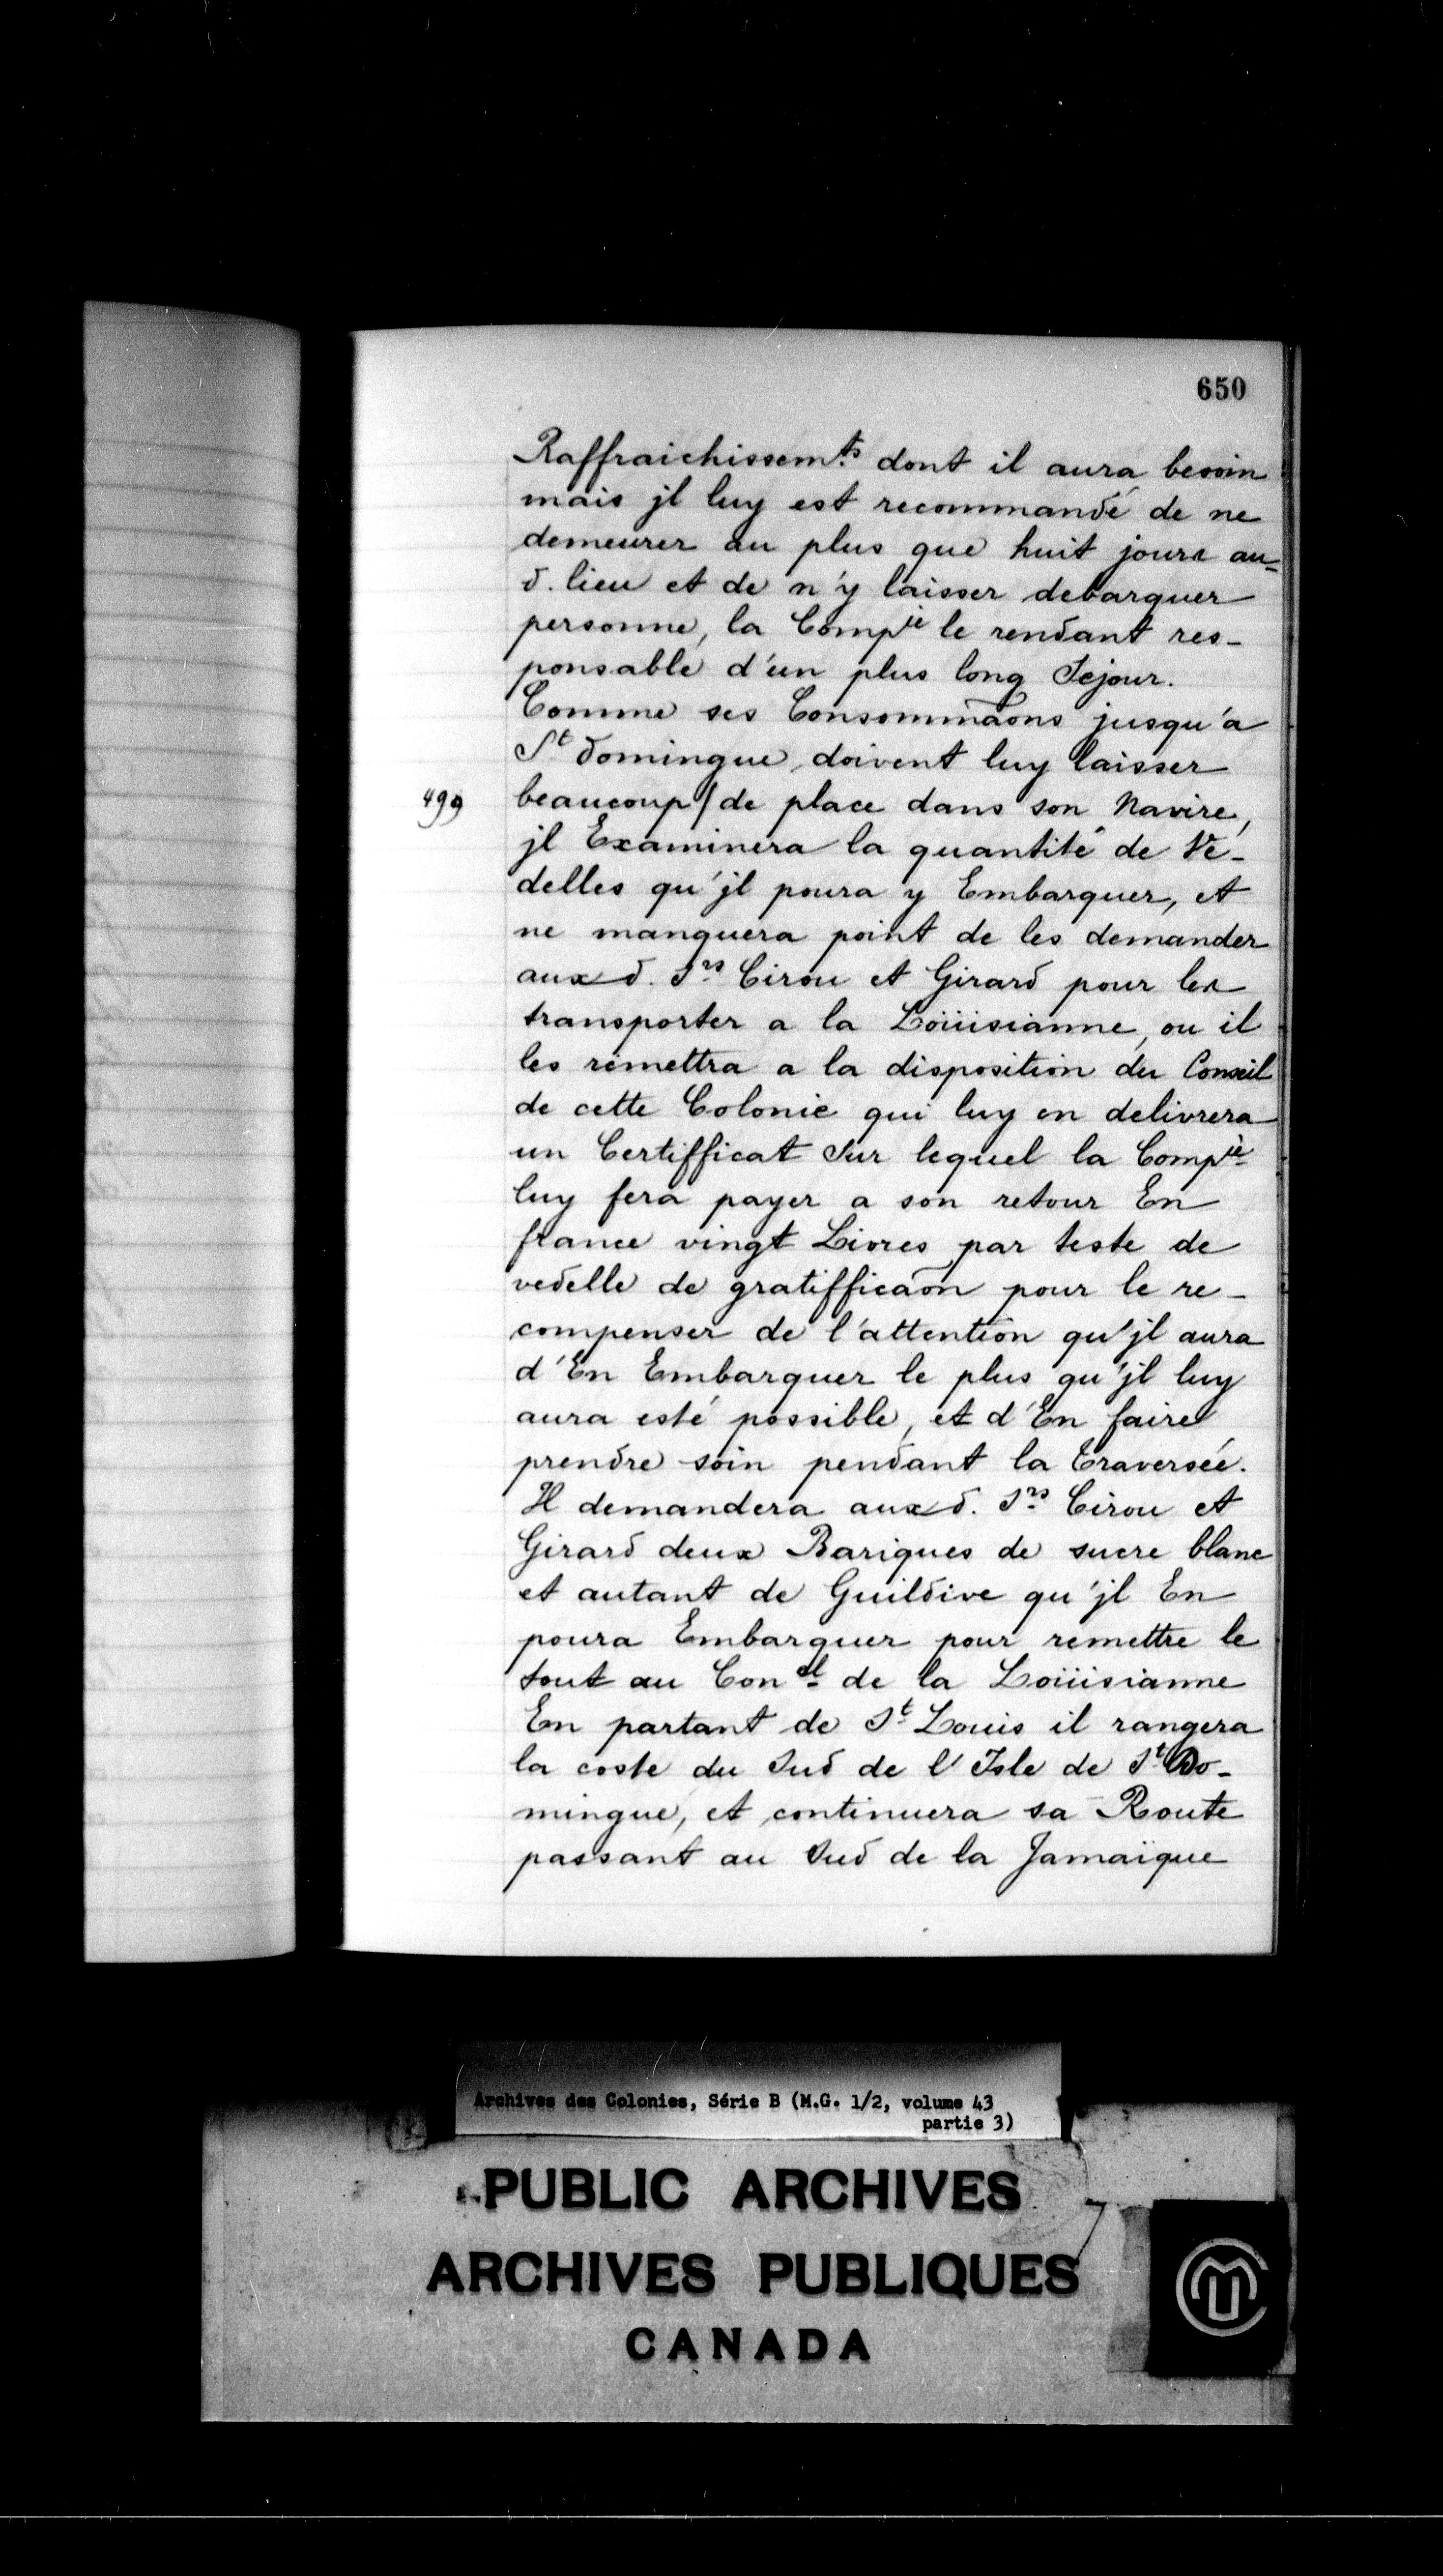 650
Raffraichissem.ts dont il aura besoin
mais jl luy est recommandé de ne
demeurer au plus que huit jours au=
d. lieu et de n'y laisser debarquer
personne, la Compie le rendant res-
ponsable d'un plus long Sejour.
Comme ses Consommaõns jusqu'a
St domingue, doivent luy laisser
499 beaucoup / de place dans son Navire,
jl Examinera la quantité de Ve-
delles qu'jl poura y Embarquer, et
ne manquera point de les demander
aux d. Srs Cirou et Girard pour les
transporter a la Loüisianne, ou il
les remettra a la disposition du Conseil
de cette Colonie qui luy en delivrera
un Certifficat Sur lequel la Compie
luy fera payer a son retour En
france vingt Livres par teste de
vedelle de gratifficaõn pour le re-
compenser de l'attention qu'jl aura
d'En Embarquer le plus qu'jl luy
aura esté possible, et d'En faire
prendre soin pendant la traversée.
Il demandera aux d. Srs Cirou et
Girard deux Bariques de sucre blanc
et autant de Guildive qu'jl En
poura Embarquer pour remettre le
tout au Conel de la Loüisianne
En partant de St Louis il rangera
la coste du Sud de l'Isle de St Do-
mingue, et continuera sa Route
passant au Sud de la Jamaïque
Archives des Colonies, Série B (M.G. 1/2, volume 43
partie 3)
PUBLIC ARCHIVES
ARCHIVES PUBLIQUES
CANADA